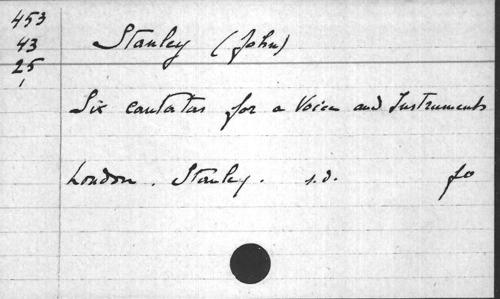 453
43
25
1
Stanley (John)
Six cantatas for a Voice and Instruments
London. Stanley. s.d. fo